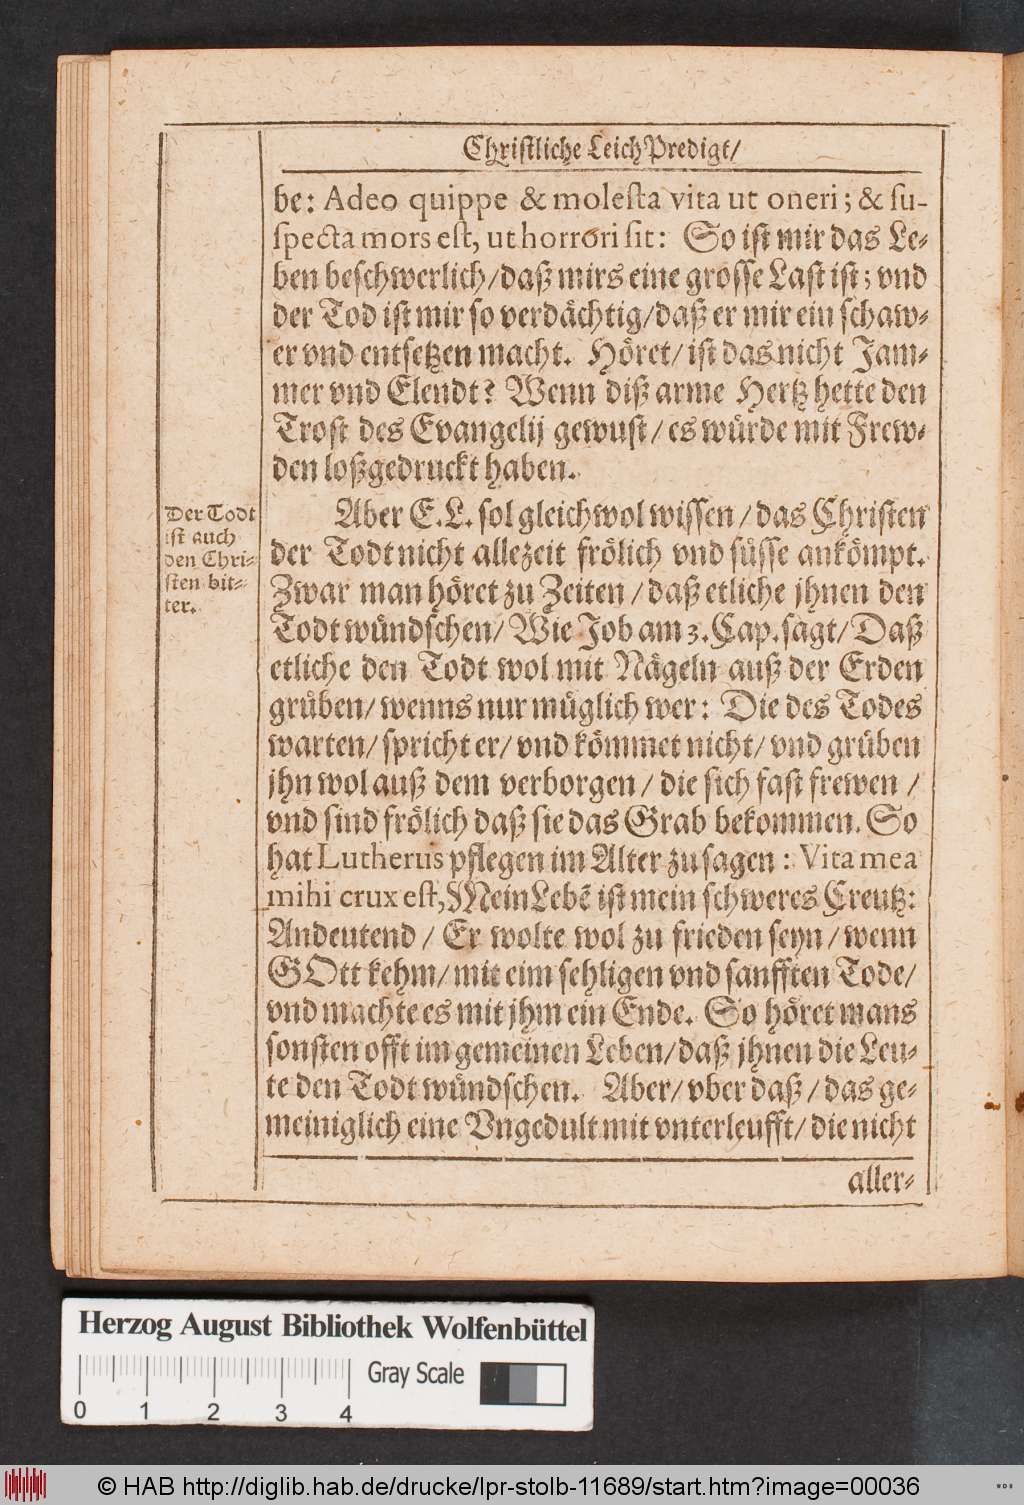 Christliche LeichPredigt/
be: Adeo quippe & molesta vita ut oneri; & su-
specta mors est, ut horrori sit: So ist mir das Le-
ben beschwerlich/daß mirs eine grosse Last ist; vnd
der Tod ist mir so verdächtig/daß er mir ein schaw-
er vnd entsetzen macht. Höret/ ist das nicht Jam-
mer vnd Elendt? Wenn diß arme Hertz hette den
Trost des Evangelij gewust/ es würde mit Frew-
den loßgedruckt haben.
Der Todt
ist auch
den Chri-
sten bit-
ter.
Aber E.L. sol gleichwol wissen/ das Christen
der Todt nicht allezeit frölich vnd süsse ankömpt.
Zwar man höret zu Zeiten/ daß etliche jhnen den
Todt wündschen/ Wie Job am 3. Cap. sagt/ Daß
etliche den Todt wol mit Nägeln auß der Erden
grüben/ wenns nur müglich wer: Die des Todes
warten/ spricht er/ vnd kömmet nicht/ vnd grüben
jhn wol auß dem verborgen/ die sich fast frewen/
vnd sind frölich daß sie das Grab bekommen. So
hat Lutherus pflegen im Alter zu sagen: Vita mea
mihi crux est, Mein Lebē ist mein schweres Creutz:
Andeutend/ Er wolte wol zu frieden seyn/ wenn
GOtt kehm/ mit eim sehligen vnd sanfften Tode/
vnd machte es mit jhm ein Ende. So höret mans
sonsten offt im gemeinen Leben/ daß jhnen die Leu-
te den Todt wündschen. Aber/ vber daß/ das ge-
meiniglich eine Vngedult mit vnterleufft/ die nicht
aller-
Herzog August Bibliothek Wolfenbüttel
Gray Scale
0 1 2 3 4
© HAB http://diglib.hab.de/drucke/lpr-stolb-11689/start.htm?image=00036